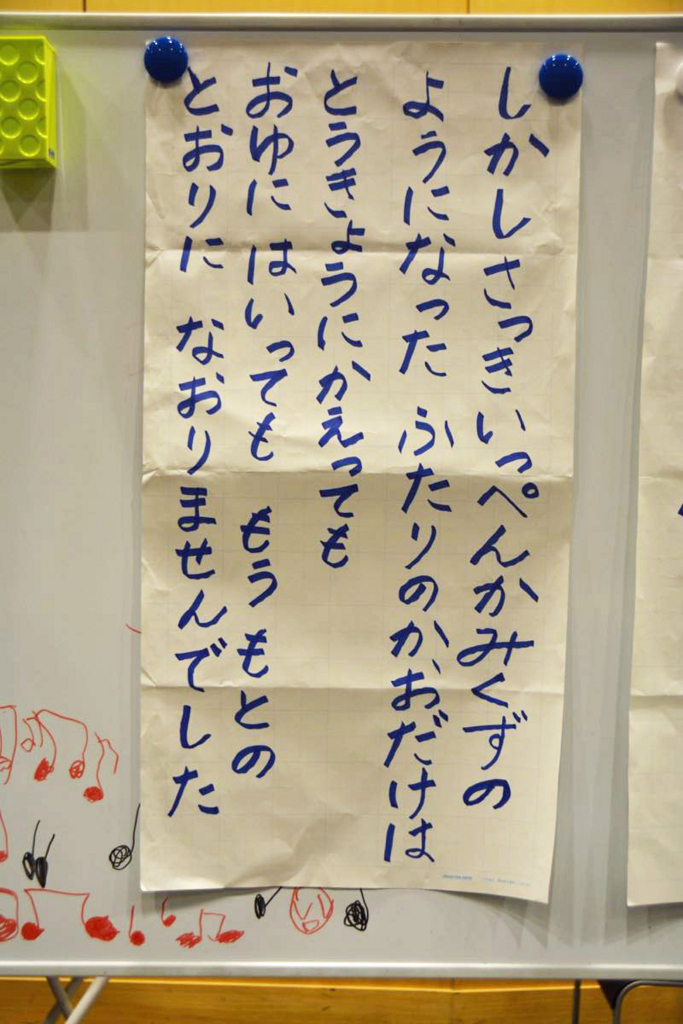 しかし さっき いっぺんかみくずの
ようになった ふたりのかおだけは
とうきょうにかえっても
おゆに はいっても もうもとの
とおりに なおりませんでした